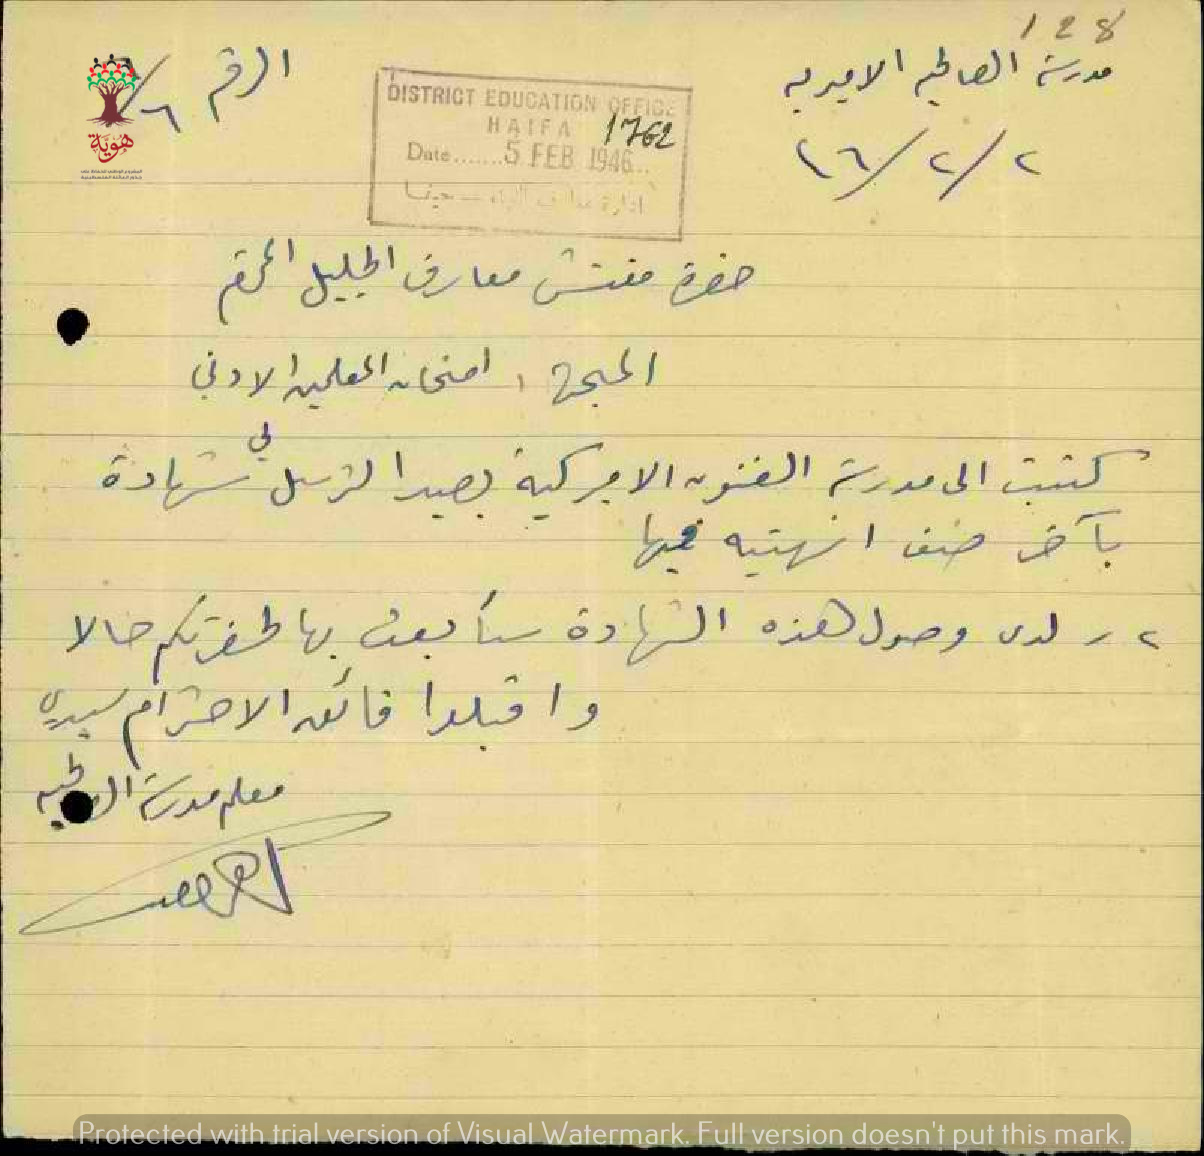 128
مدرسة الصالحيه الاميريه
الرقم ٦/
٤٦/٢/٢
DISTRICT EDUCATION OFFICE
HAIFA
1762
Date.......5 FEB 1946...
ادارة معارف اللواء - حيفا
هوية
حضرة مفتش معارف الجليل المحترم
المبحث ، امتحان المعلمين الادنى
كتبت الى مدرسة الفنون الاميركية بصيدا لترسل لي شهادة
بآخر صف انهيته فيها
٢ - لدى وصول هذه الشهادة سأبعث بها لحضرتكم حالا
واقبلوا فائق الاحترام سيدي
معلم مدرسة الصالحيه
Protected with trial version of Visual Watermark. Full version doesn't put this mark.